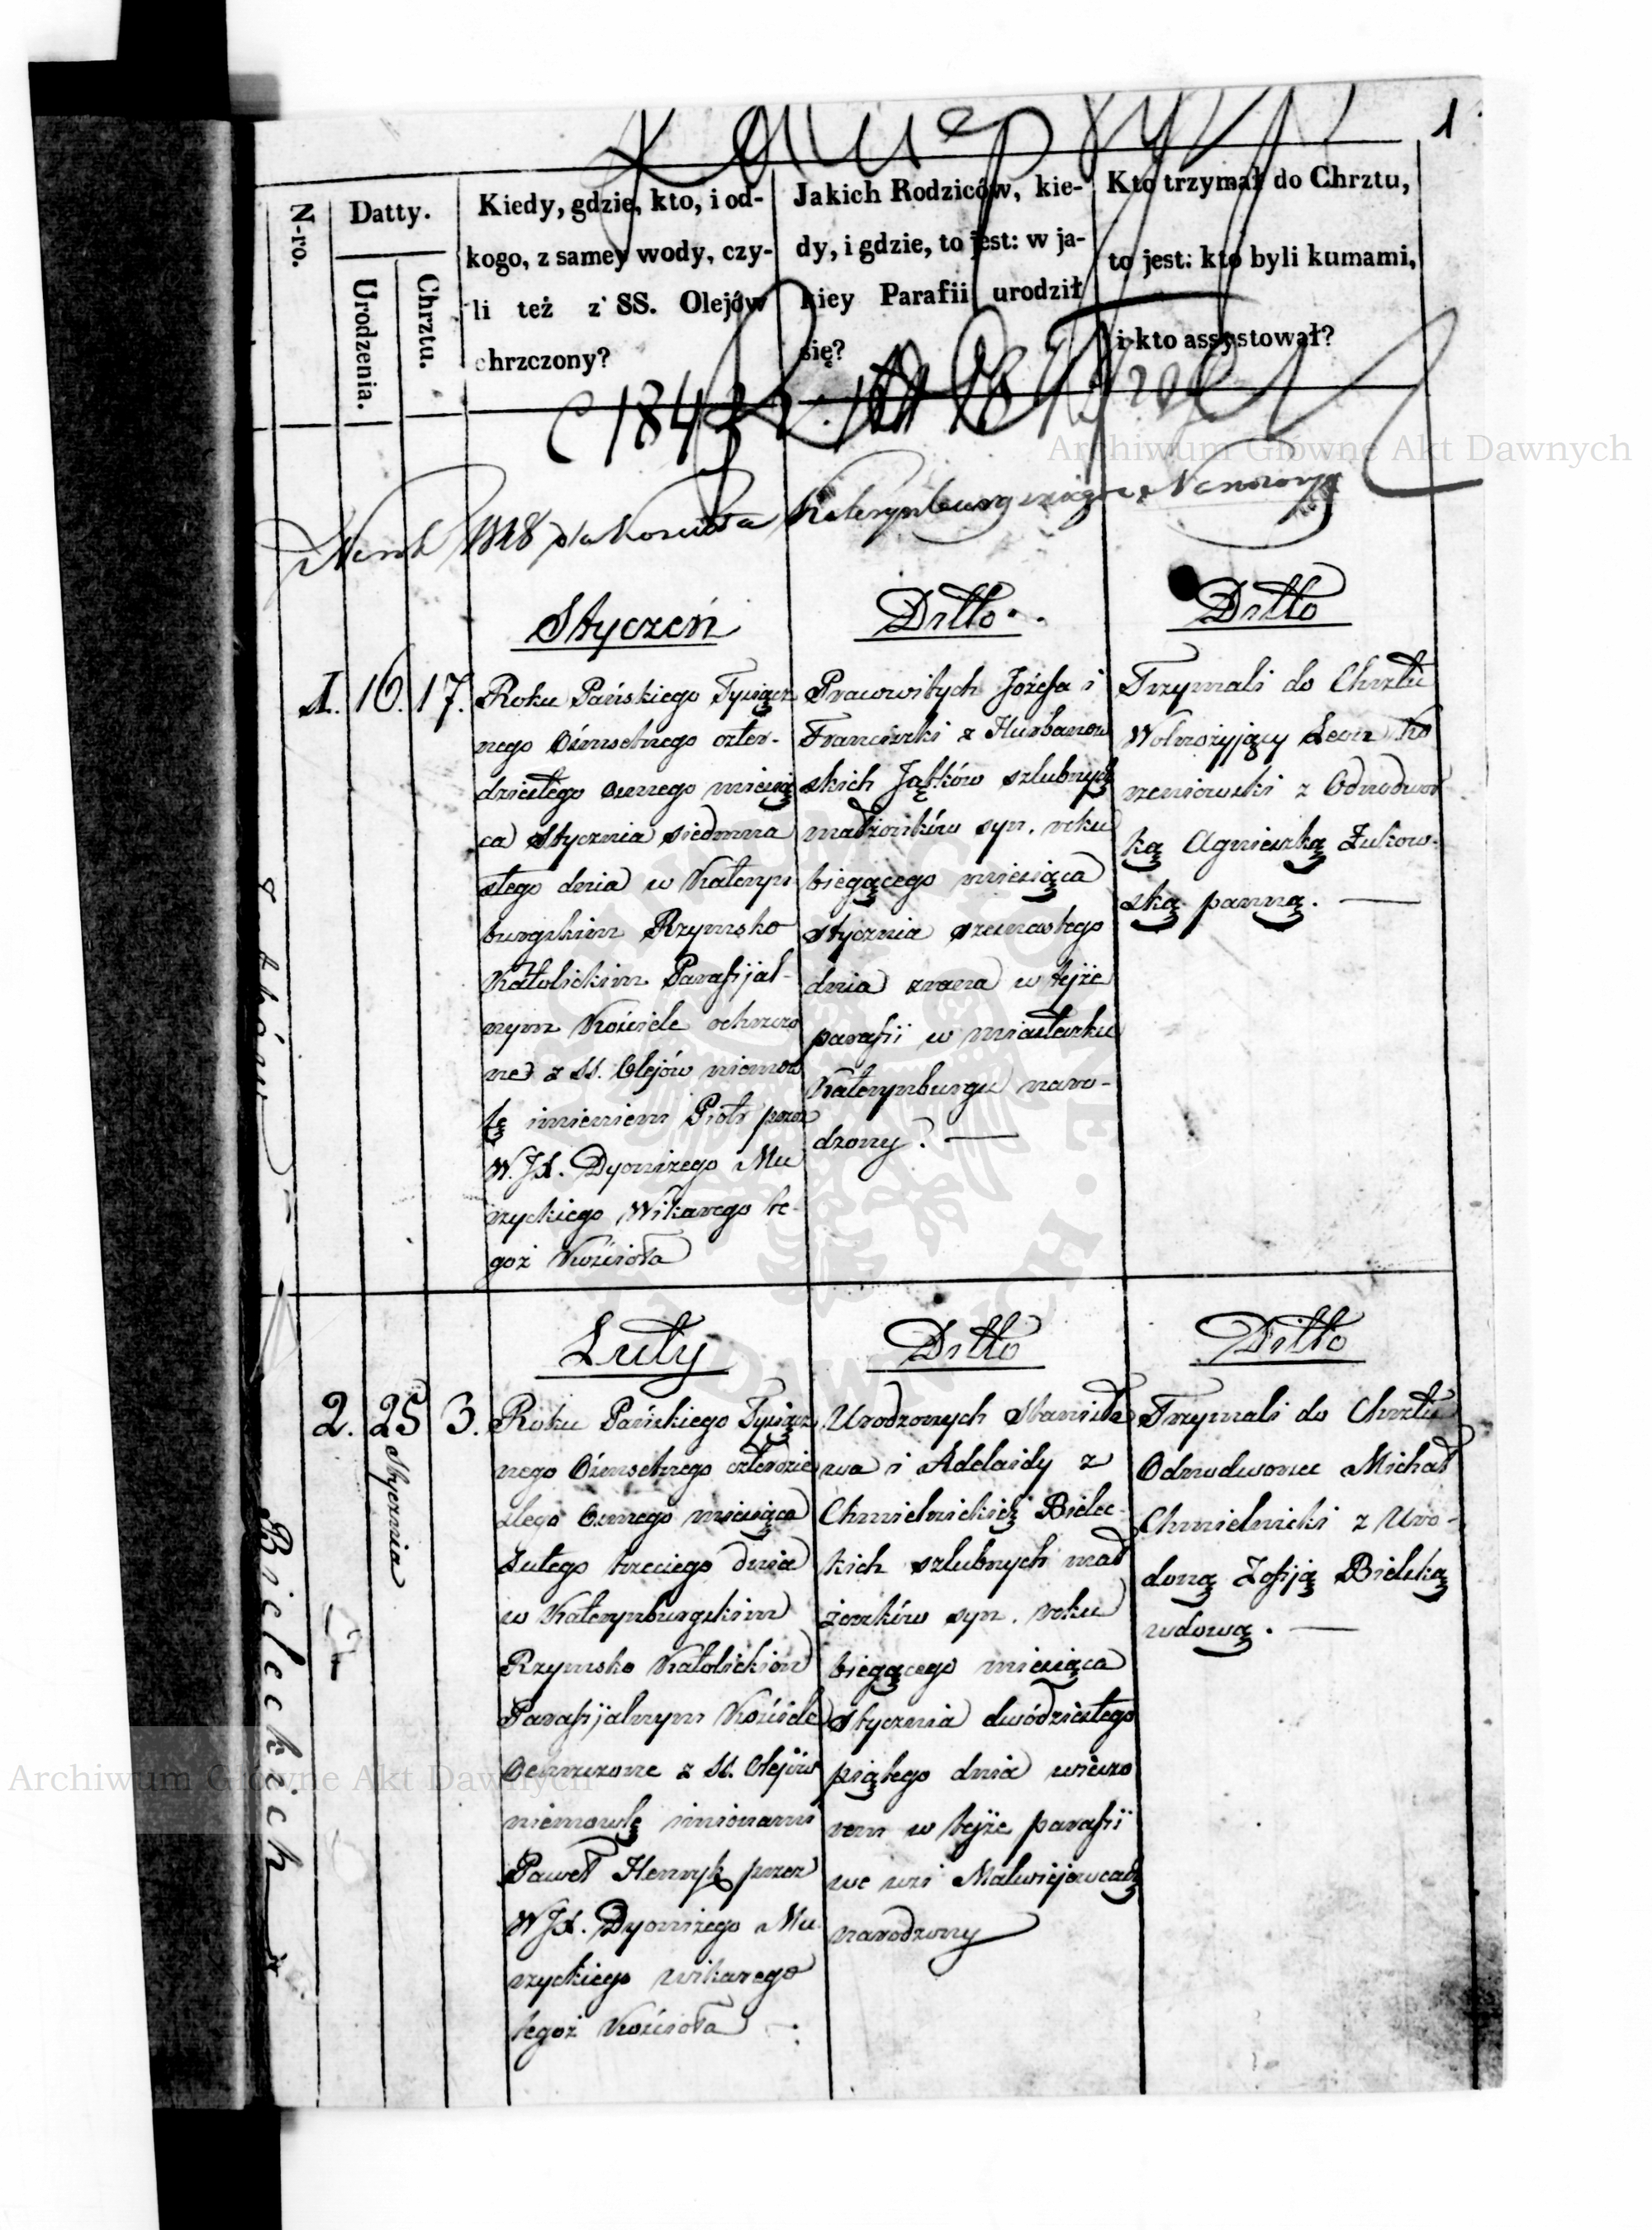 1
N-ro.
Datty.
Urodzenia.
Chrztu.
Kiedy, gdzie, kto, i od-
kogo, z samey wody, czy-
li też z SS. Olejów
chrzczony?
Jakich Rodziców, kie-
dy, i gdzie, to jest: w ja-
kiey Parafii urodził
się?
Kto trzymał do Chrztu,
to jest: kto byli kumami,
i kto assystował?
1843
Archiwum Główne Akt Dawnych
1848 dla Kościoła Katerynburg
Styczeń
1. 16. 17.
Roku Pańskiego Tysiącz
nego Ośmsetnego czter-
dziestego osmego miesią
ca Stycznia siedmna
stego dnia w Kateryn
burgskim Rzymsko
Katolickim Parafijal-
nym Kościele ochrzczo
ne z SS. Olejów niemow
lę imieniem Piotr przez
W.JX. Dyonizego Mu
rzyckiego Wikarego te-
goż Kościoła
Ditto.
Pracowitych Józefa i
Franciszki z Hurbanow
skich Jątków szlubnych
małżonków syn. roku
biegącego miesiąca
stycznia szesnastego
dnia zrana w tejże
parafii w miasteczku
Katerynburgu naro-
dzony.
Ditto
Trzymali do Chrztu
Wolnożyjący Leon Ko
rzeniowski z Odnodwor
ką Agnieszką Żukow-
ską panną.
Luty
2. 25 3.
Stycznia
Roku Pańskiego Tysiącz
nego Ośmsetnego czterdzie
stego Osmego miesiąca
Lutego trzeciego dnia
w Katerynburgskim
Rzymsko Katolickim
Parafijalnym Kościele
Ochrzczone z SS. Olejów
niemowlę imionami
Paweł Henryk przez
WJX. Dyonizego Mu
rzyckiego wikarego
tegoż Kościoła
Ditto
Urodzonych Stanisła
wa i Adelaidy z
Chmielnickich Bielec-
kich szlubnych mał
żonków syn. roku
biegącego miesiąca
Stycznia dwódziestego
piątego dnia wieczo
rem w tejże parafii
we wsi Matwiejowcach
narodzony
Ditto
Trzymali do Chrztu
Odnodworzec Michał
Chmielnicki z Uro-
doną Zofiją Bielecką
wdową.
Bieleckich
Archiwum Główne Akt Dawnych